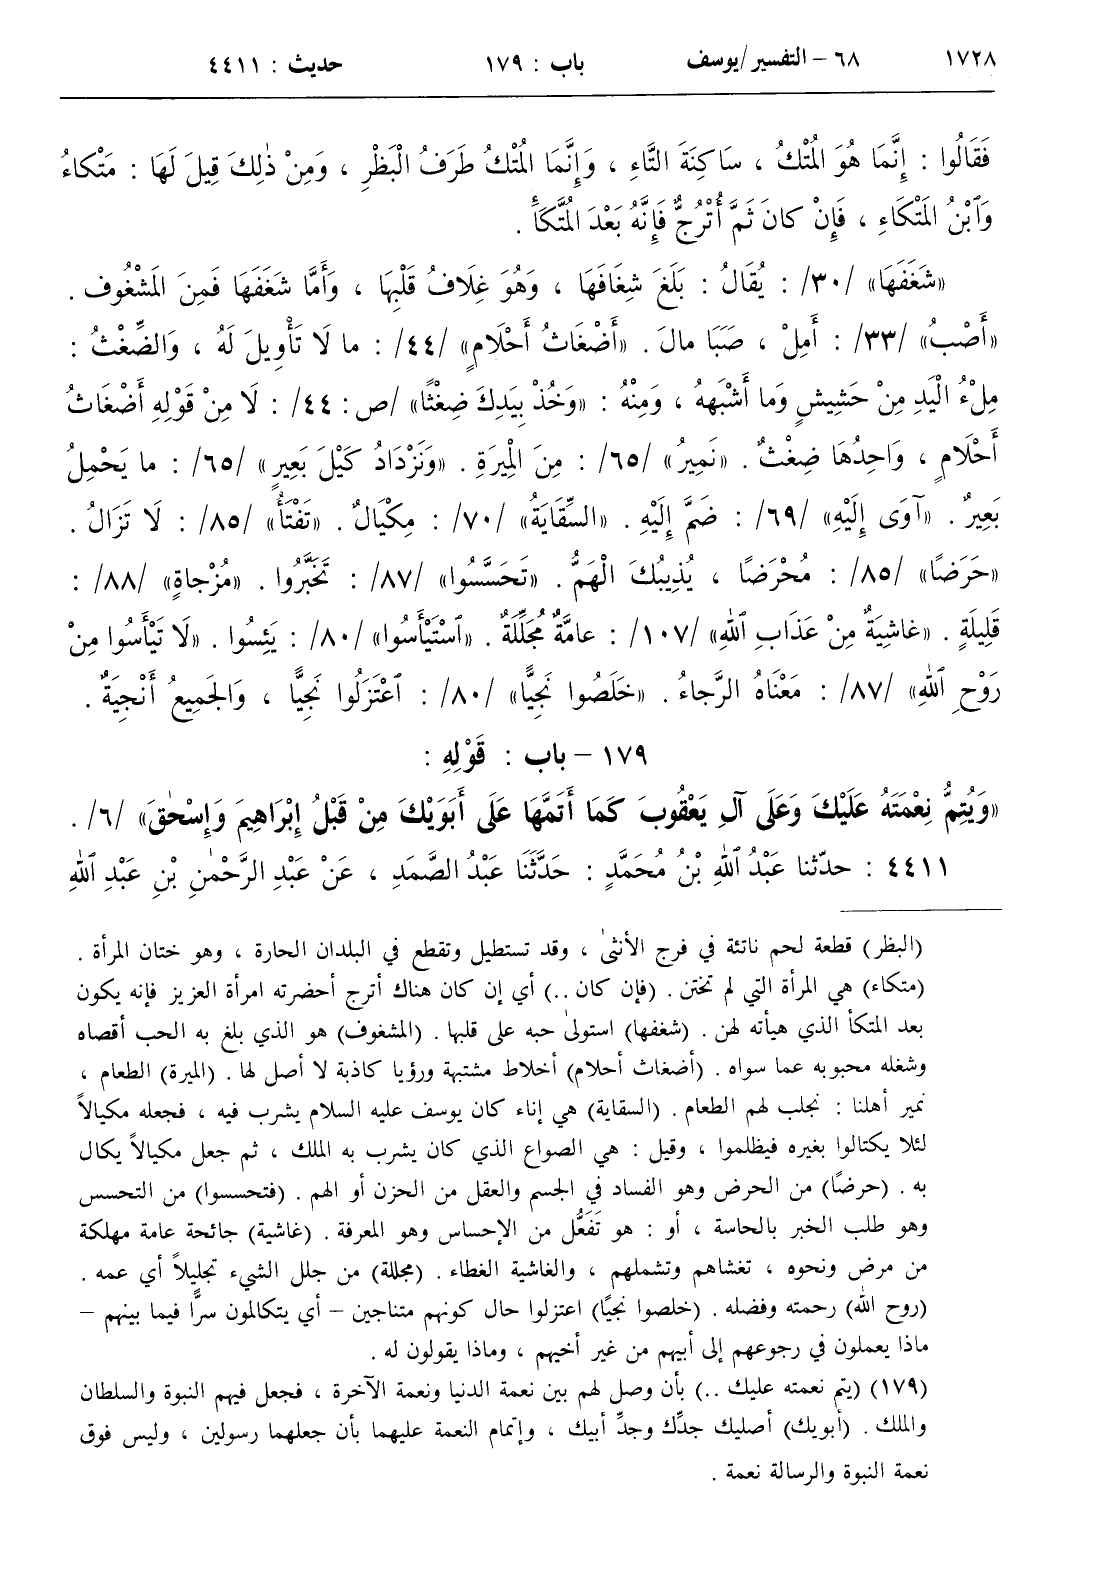 ١٧٢٨ ٦٨ – التفسير/يوسف باب : ١٧٩ حديث : ٤٤١١
فَقَالُوا : إِنَّمَا هُوَ الْمُتْكُ ، سَاكِنَةَ التَّاءِ ، وَإِنَّمَا الْمُتْكُ طَرَفُ الْبَظْرِ ، وَمِنْ ذٰلِكَ قِيلَ لَهَا : مَتْكاءُ
وَٱبْنُ الْمَتْكَاءِ ، فَإِنْ كانَ ثَمَّ أُتْرُجٌّ فَإِنَّهُ بَعْدَ الْمُتَّكَأِ .
«شَغَفَهَا» /٣٠/ : يُقَالُ : بَلَغَ شِغَافَهَا ، وَهُوَ غِلَافُ قَلْبِهَا ، وَأَمَّا شَعَفَهَا فَمِنَ الْمَشْعُوفِ .
«أَصْبُ» /٣٣/ : أَمِلْ ، صَبَا مالَ . «أَضْغَاثُ أَحْلَامٍ» /٤٤/ : ما لَا تَأْوِيلَ لَهُ ، وَالضِّغْثُ :
مِلْءُ الْيَدِ مِنْ حَشِيشٍ وَما أَشْبَهَهُ ، وَمِنْهُ : «وَخُذْ بِيَدِكَ ضِغْثًا» /ص: ٤٤/ : لَا مِنْ قَوْلِهِ أَضْغَاثُ
أَحْلَامٍ ، وَاحِدُهَا ضِغْثٌ . «نَمِيرُ» /٦٥/ : مِنَ الْمِيرَةِ . «وَنَزْدَادُ كَيْلَ بَعِيرٍ» /٦٥/ : ما يَحْمِلُ
بَعِيرٌ . «آوَى إِلَيْهِ» /٦٩/ : ضَمَّ إِلَيْهِ . «السِّقَايَةُ» /٧٠/ : مِكْيَالٌ . «تَفْتَأُ» /٨٥/ : لَا تَزَالُ .
«حَرَضًا» /٨٥/ : مُحْرَضًا ، يُذِيبُكَ الْهَمُّ . «تَحَسَّسُوا» /٨٧/ : تَخَبَّرُوا . «مُزْجاةٍ» /٨٨/ :
قَلِيلَةٍ . «غاشِيَةٌ مِنْ عَذَابِ ٱللهِ» /١٠٧/ : عامَّةٌ مُجَلِّلَةٌ . «ٱسْتَيْأَسُوا» /٨٠/ : يَئِسُوا . «لَا تَيْأَسُوا مِنْ
رَوْحِ ٱللهِ» /٨٧/ : مَعْنَاهُ الرَّجاءُ . «خَلَصُوا نَجِيًّا» /٨٠/ : ٱعْتَزَلُوا نَجِيًّا ، وَالْجَمِيعُ أَنْجِيَةٌ .
١٧٩ – باب : قَوْلِهِ :
«وَيُتِمُّ نِعْمَتَهُ عَلَيْكَ وَعَلَى آلِ يَعْقُوبَ كَمَا أَتَمَّهَا عَلَى أَبَوَيْكَ مِنْ قَبْلُ إِبْرَاهِيمَ وَإِسْحٰقَ» /٦/ .
٤٤١١ : حدّثنا عَبْدُ ٱللهِ بْنُ مُحَمَّدٍ : حَدَّثَنَا عَبْدُ الصَّمَدِ ، عَنْ عَبْدِ الرَّحْمٰنِ بْنِ عَبْدِ ٱللهِ
(البظر) قطعة لحم ناتئة في فرج الأنثىٰ ، وقد تستطيل وتقطع في البلدان الحارة ، وهو ختان المرأة .
(متكاء) هي المرأة التي لم تختن . (فإن كان ..) أي إن كان هناك أترج أحضرته امرأة العزيز فإنه يكون
بعد المتكأ الذي هيأته لهن . (شغفها) استولىٰ حبه على قلبها . (المشغوف) هو الذي بلغ به الحب أقصاه
وشغله محبوبه عما سواه . (أضغاث أحلام) أخلاط مشتبهة ورؤيا كاذبة لا أصل لها . (الميرة) الطعام ،
نمير أهلنا : نجلب لهم الطعام . (السقاية) هي إناء كان يوسف عليه السلام يشرب فيه ، فجعله مكيالاً
لئلا يكتالوا بغيره فيظلموا ، وقيل : هي الصواع الذي كان يشرب به الملك ، ثم جعل مكيالاً يكال
به . (حرضًا) من الحرض وهو الفساد في الجسم والعقل من الحزن أو الهم . (فتحسسوا) من التحسس
وهو طلب الخبر بالحاسة ، أو : هو تَفَعُّل من الإحساس وهو المعرفة . (غاشية) جائحة عامة مهلكة
من مرض ونحوه ، تغشاهم وتشملهم ، والغاشية الغطاء . (مجللة) من جلل الشيء تجليلاً أي عمه .
(روح الله) رحمته وفضله . (خلصوا نجيًا) اعتزلوا حال كونهم متناجين – أي يتكالمون سرًّا فيما بينهم –
ماذا يعملون في رجوعهم إلى أبيهم من غير أخيهم ، وماذا يقولون له .
(١٧٩) (يتم نعمته عليك ..) بأن وصل لهم بين نعمة الدنيا ونعمة الآخرة ، فجعل فيهم النبوة والسلطان
والملك . (أبويك) أصليك جدِّك وجدِّ أبيك ، وإتمام النعمة عليهما بأن جعلهما رسولين ، وليس فوق
نعمة النبوة والرسالة نعمة .